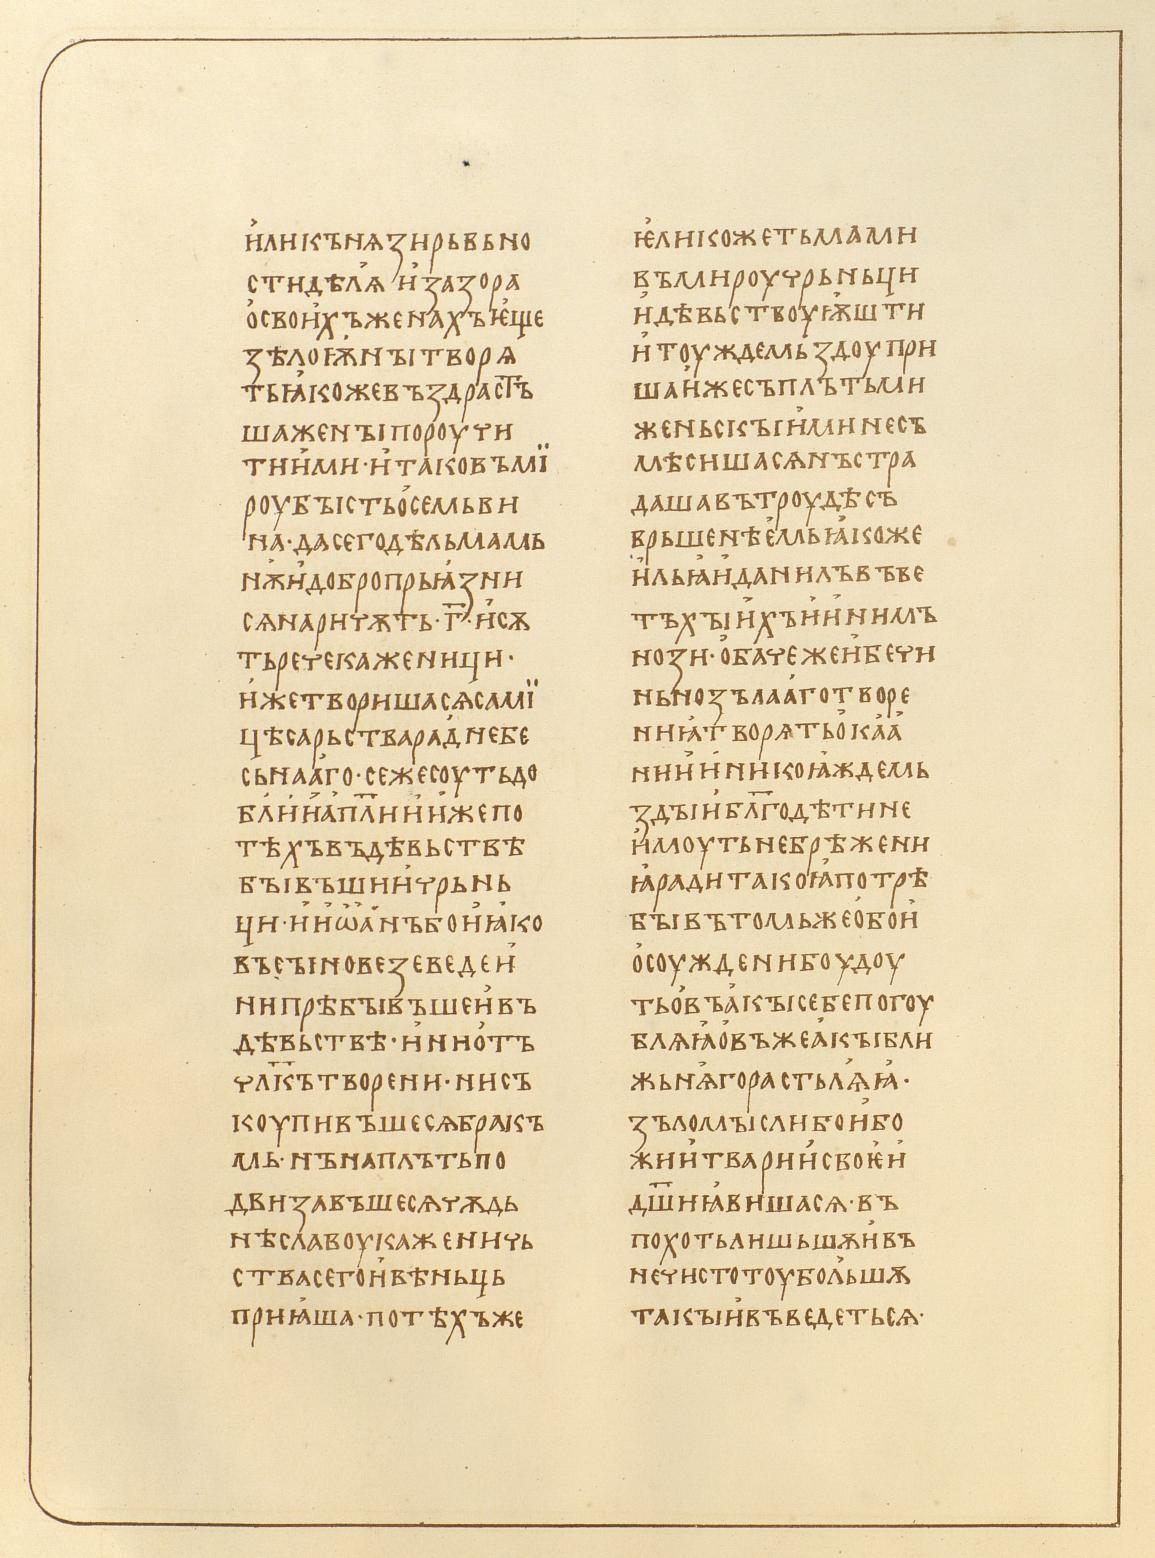 и҆ликънѧзирьвьно
стидѣлѧ и҆зазора
о҆своихъженахъѥ҆ще
зѣлоѭ҆нꙑтворѧ
тьꙗ҆кожевъздрастъ
шаженꙑпороучи
тиими·и҆таковъмї
роубꙑстьо҆семьви
на·дасегодѣльмамь
нѫи҆добропрьꙗ҆зни
сѧнаричѫть·г҃·и҆сѫ
тьречекаженици·
и҆жетворишасѧсамї
цѣсарьстварад҆инебе
сьнаа҆го·сежесоутьдо
бли҆и҆а҆пл҃ии҆и҆жепо
тѣхъвъдѣвьствѣ
бꙑвъшии҆чрьнь
ци·и҆и҆ѡ҆а҆нъбои҆ꙗ҆ко
въсꙑновезеведеи҆
нипрѣбꙑвъшеи҆въ
дѣвьствѣ·и҆нио҆тъ
чл҃къ творени·нисъ
коупивъшесѧбракъ
мь·нънаплътьпо
двизавъшесѧчѫдь
нѣславоукаженичь
ствасегои҆вѣньць
приꙗ҆ша·потѣхъже
ѥ҆ликожетьмами
въмироучрьньци
и҆дѣвьствоуѭ҆шти
и҆тоуждемьздоупри
шаи҆жесъплътьми
женьскꙑи҆минесъ
мѣсишасѧнъстра
дашавътроудѣсъ
врьшенѣе҆мьꙗ҆коже
и҆льꙗ҆и҆данилъвъве
тъхꙑи҆хъи҆и҆нимъ
нози·о҆бачежеи҆бечи
ньнозълаа҆готворе
ниꙗ҆творѧтьо҆каа҆
нии҆и҆никоꙗ҆ждемь
здꙑи҆бл҃годѣтине
и҆моутьнебрѣжени
ꙗ҆радитакоꙗ҆потрѣ
бꙑвътомьжео҆бои҆
о҆соужденибоудоу
тьо҆въа҆кꙑсебепогоу
блѧꙗ҆о҆въжеа҆кꙑбли
жьнѧгорастьлѧꙗ҆·
зъломꙑслибои҆бо
жии҆твариисвоѥ҆и҆
дш҃иꙗ҆вишасѧ·въ
похотьлишьшѫи҆въ
нечистотоубольшѫ
такꙑи҆въведетьсѧ·